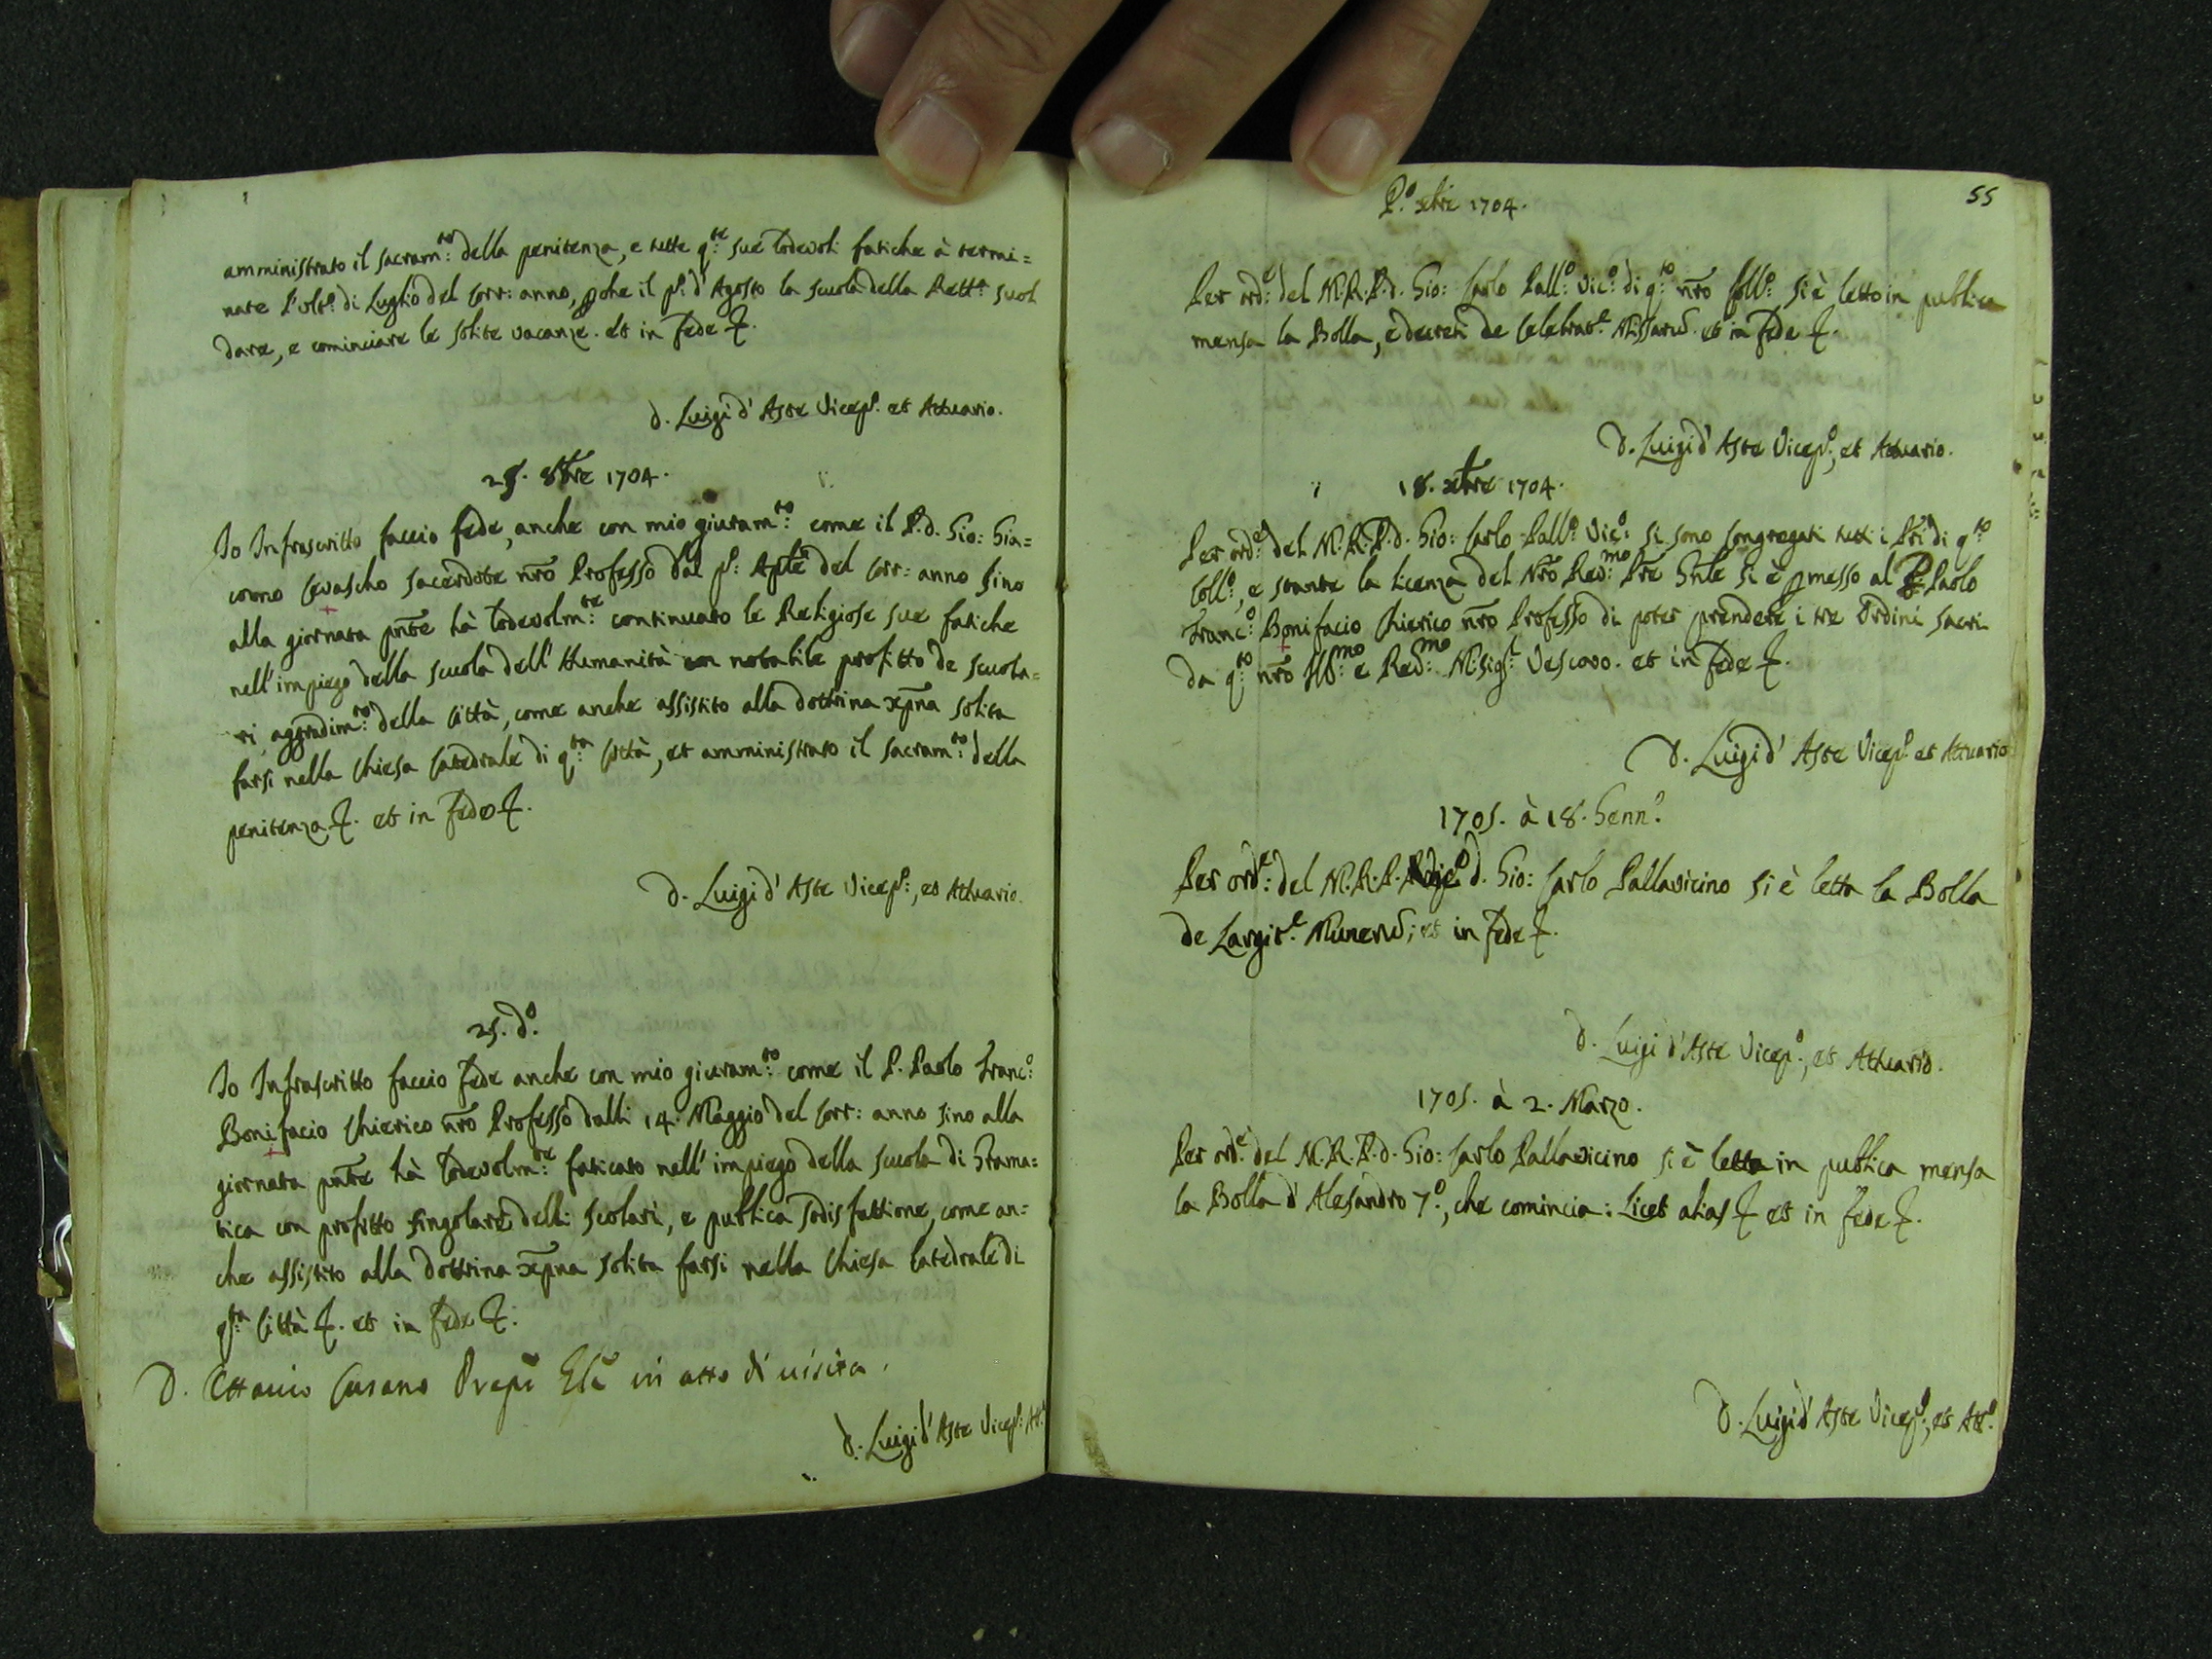 amministrato il sacram:to della penitenza, e tutte q:te sue lodevoli fatiche à termi=
nate l'ult:o di Luglio del corr: anno, pche il p:o d'Agosto la scuola della Rett:a suol
dare, e cominciare le solite vacanze. et in fede &.
d. Luigi d'Aste Vicep:o et Attuario.
25. 8bre 1704.
Io Infrascritto faccio fede, anche con mio giuram:to come il P. d. Gio: Gia=
como Cevascho sacerdote nro Professo dal p:o Aple del corr: anno sino
alla giornata pnte hà lodevolm:te continuato le Religiose sue fatiche
nell'impiego della scuola dell'Humanità con notabile profitto de scuola=
ri, aggradim:to della Città, come anche assistito alla dottrina xpna solita
farsi nella Chiesa Catedrale di q:ta Città, et amministrato il sacram:to della
penitenza &. et in fede &.
d. Luigi d'Aste Vicep:o, et Attuario.
25. d:o
Io Infrascritto faccio fede anche con mio giuram:to come il P. Paolo Franc:o
Bonifacio Chierico nro Professo dalli 14. Maggio del corr: anno sino alla
giornata pnte hà lodevolm:te faticato nell'impiego della scuola di Grama=
tica con profitto singolare delli scolari, e publica sodisfattione, come an=
che assistito alla dottrina xpna solita farsi nella Chiesa Catedrale di
q:ta Città &. et in fede &.
D. Ottavio Cusano Prep Gle in atto di visita.
d. Luigi d'Aste Vicep:o Att:o
55
P:o xbre 1704.
Per ord:e del M. R. P. d. Gio: Carlo Pall:o Vic:o di q:to nro Coll:o si è letto in publica
mensa la Bolla, e decreti de Celebrat:e Missarū. et in fede &.
D. Luigi d'Aste Vicep:o, et Attuario.
18. xbre 1704.
Per ord:e del M. R. P. d. Gio: Carlo Pall:o Vic:o si sono congregati tutti i Pri di q:to
Coll:o, e stante la licenza del Nro Rev:mo Pre Gnle si è pmesso al P. Paolo
Franc:o Bonifacio Chierico nro Professo di poter prendere i tre Ordini sacri
da q:to nro Ill:mo e Rev:mo M:sig:r Vescovo. et in fede &.
D. Luigi d'Aste Vicep:o et Attuario
1705. à 18. Genn:o
Per ord:e del M. R. P. d. Gio: Carlo Pallavicino si è letta la Bolla
de Largit:e Munerū; et in fede &.
d. Luigi d'Aste Vicep:o, et Attuario.
1705. à 2. Marzo.
Per ord:e del M. R. P. d. Gio: Carlo Pallavicino si è letta in publica mensa
la Bolla d'Alesandro 7:o, che comincia: Licet alias & et in fede &.
D. Luigi d'Aste Vicep:o, et Att:o